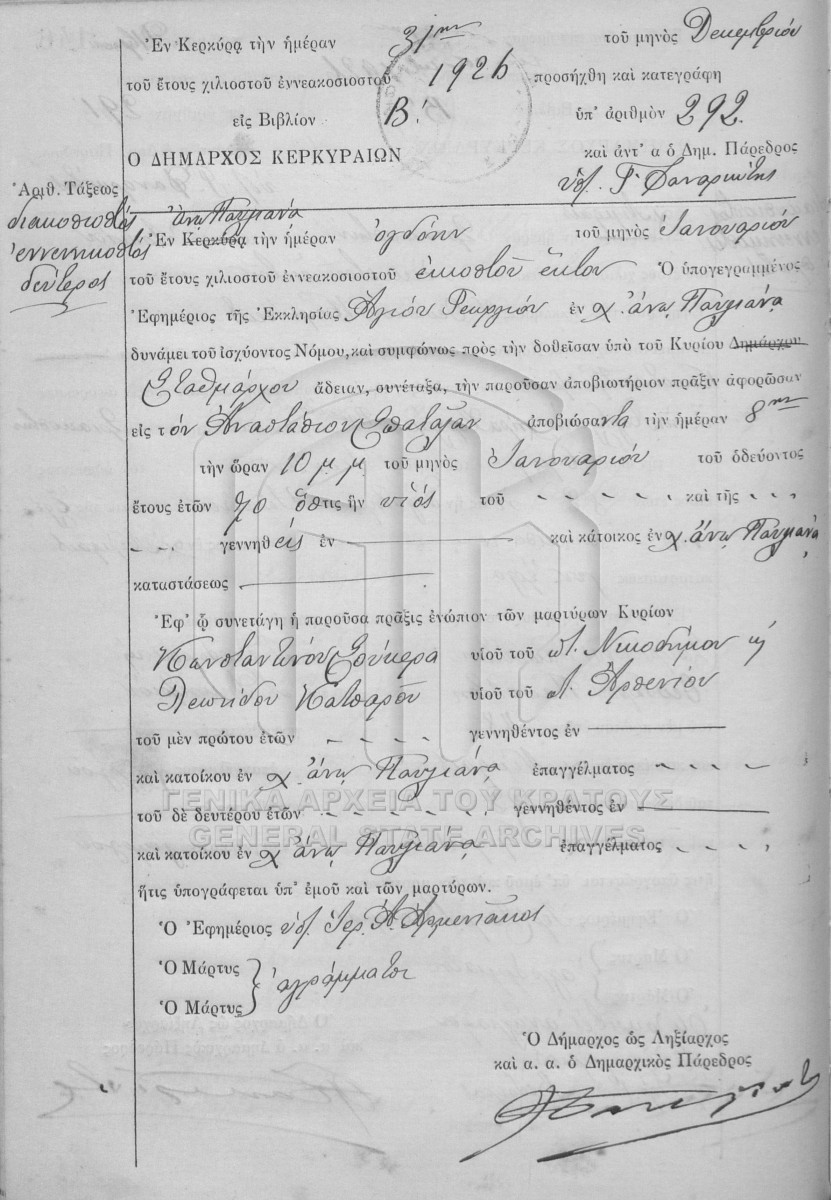 Ἐν Κερκύρᾳ τὴν ἡμέραν 31ην τοῦ μηνὸς Δεκεμβρίου
τοῦ ἔτους χιλιοστοῦ ἐννεακοσιοστοῦ 1926 προσήχθη καὶ κατεγράφη
εἰς Βιβλίον Β! ὑπ' ἀριθμὸν 292.
Ο ΔΗΜΑΡΧΟΣ ΚΕΡΚΥΡΑΙΩΝ καὶ ἀντ' α ὁ Δημ. Πάρεδρος
Ἀριθ. Τάξεως
διακοσιοστὸς
ἐννενηκοστὸς
δεύτερος
ἄνω Παυλιάνα
Ἐν Κερκύρᾳ τὴν ἡμέραν ὀγδόην τοῦ μηνὸς Ἰανουαρίου
τοῦ ἔτους χιλιοστοῦ ἐννεακοσιοστοῦ εἰκοστοῦ ἕκτου Ὁ ὑπογεγραμμένος
Ἐφημέριος τῆς Ἐκκλησίας Ἁγίου Γεωργίου ἐν χ. ἄνω Παυλιάνα
δυνάμει τοῦ ἰσχύοντος Νόμου, καὶ συμφώνως πρὸς τὴν δοθεῖσαν ὑπὸ τοῦ Κυρίου Δημάρχου
Σταθμάρχου ἄδειαν, συνέταξα, τὴν παροῦσαν ἀποβιωτήριον πρᾶξιν ἀφορῶσαν
εἰς τὸν Ἀναστάσιον Σπαταλᾶν ἀποβιώσαντα τὴν ἡμέραν 8ην
τὴν ὥραν 10 μ μ τοῦ μηνὸς Ἰανουαρίου τοῦ ὁδεύοντος
ἔτους ἐτῶν 70 ὅστις ἦν υἱὸς τοῦ καὶ τῆς
γεννηθεὶς ἐν καὶ κάτοικος ἐν χ. ἄνω Παυλιάνα
καταστάσεως
Ἐφ' ᾧ συνετάγη ἡ παροῦσα πρᾶξις ἐνώπιον τῶν μαρτύρων Κυρίων
Κωνσταντίνου υἱοῦ τοῦ Νικοδήμου κ
Λεωνίδου Κατσαροῦ υἱοῦ τοῦ Ἀρσενίου
τοῦ μὲν πρώτου ἐτῶν γεννηθέντος ἐν
καὶ κατοίκου ἐν χ. ἄνω Παυλιάνα ἐπαγγέλματος
ΓΕΝΙΚΑ ΑΡΧΕΙΑ ΤΟΥ ΚΡΑΤΟΥΣ
τοῦ δὲ δευτέρου ἐτῶν γεννηθέντος ἐν
GENERAL STATE ARCHIVES
καὶ κατοίκου ἐν χ ἄνω Παυλιάνα ἐπαγγέλματος
ἥτις ὑπογράφεται ὑπ' ἐμοῦ καὶ τῶν μαρτύρων.
Ὁ Ἐφημέριος ὑπ. Ἱερ.
Ὁ Μάρτυς
ἀγράμματοι
Ὁ Μάρτυς
Ὁ Δήμαρχος ὡς Ληξίαρχος
καὶ α. α. ὁ Δημαρχικὸς Πάρεδρος